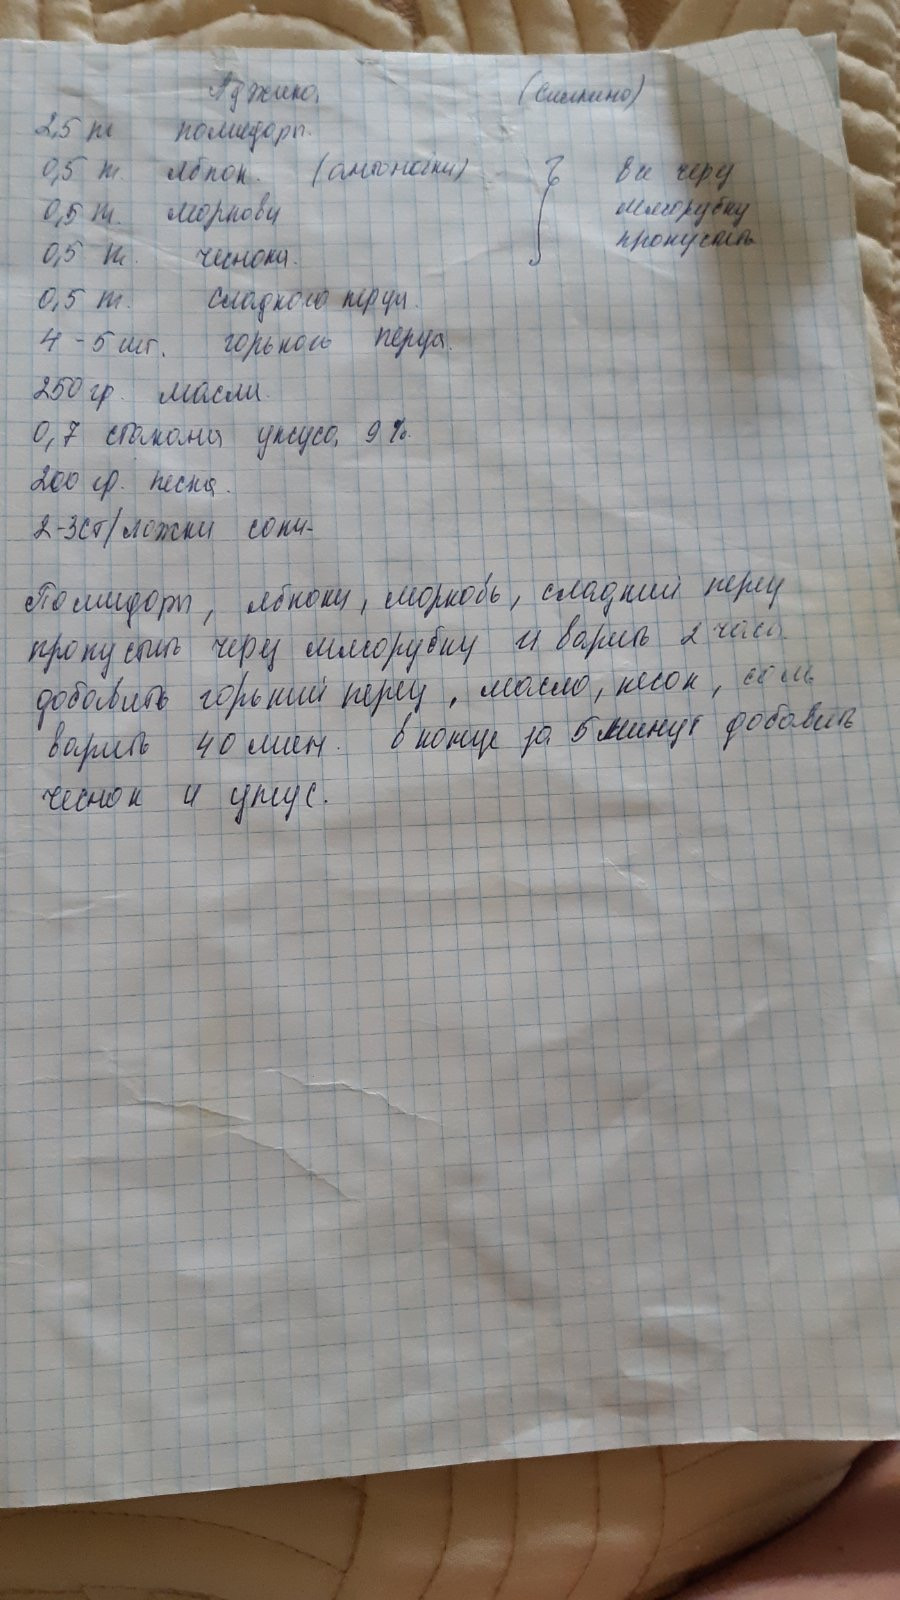 Аджика
2,5 кг помидоры.
0,5 кг. яблок. (антоновки) } Все через
0,5 кг. моркови мясорубку
0,5 кг. чеснока. пропустить
0,5 кг. сладкого перца.
4-5 шт. горького перца.
250 гр. масла.
0,7 стакана уксуса 9%.
200 гр. песка.
2-3 ст/ложки соли-
Помидоры, яблоки, морковь, сладкий перец
пропустить через мясорубку и варить 2 часа.
добавить горький перец, масло, песок, соль
варить 40 мин. в конце за 5 минут добавить
чеснок и уксус.